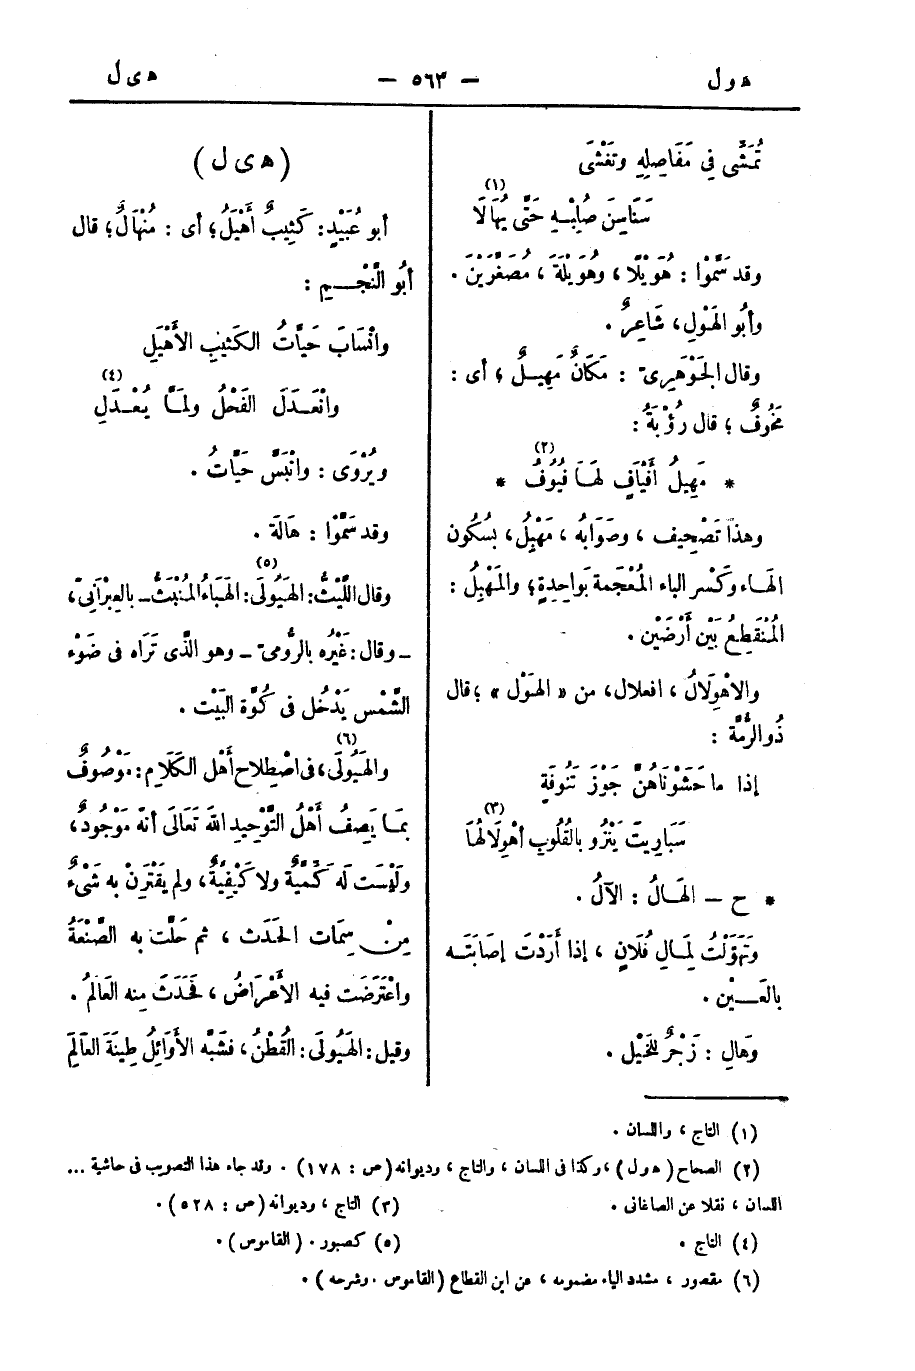 هول — ٥٦٣ — هيل
تُمَشَّى فِي مَفَاصِلِهِ وتَغْشَى
سَنَاسِنَ صُلْبِهِ حَتَّى يُهَالَا (١)
وقد سَمَّوْا : هُوَيْلًا ، وهُوَيْلَةَ ، مُصَغَّرَيْنِ .
وأبُو الهَوْلِ ، شَاعِرٌ .
وقال الجَوْهَرِىّ : مَكَانٌ مَهِيلٌ ؛ أى :
مَخُوفٌ ؛ قال رُؤْبَةُ :
* مَهِيلُ أَفْيَافٍ لَهَا فُيُوفُ * (٢)
وهذا تَصْحِيف ، وصَوَابُه ، مَهْبِلُ ، بسُكُون
الهَاء وكَسْر الباء المُعْجَمة بَواحِدةٍ ؛ والمَهْبِلُ :
المُنْقَطِعُ بَيْن أَرْضَيْن .
والاهْوِلَالُ ، افعلال ، من « الهَوْل » ؛ قال
ذُو الرُّمَّة :
إذا ما حَشَوْنَاهُنَّ جَوْزَ تَنُوفَةٍ
سَبَارِيتَ يَنْزُو بالقُلُوبِ أهْوِلَالُهَا (٣)
* ح — الهَالُ : الآلُ .
وتَهَوَّلْتُ لِمَالِ فُلَانٍ ، إذا أَرَدْتَ إصَابَتَه
بالعَيْن .
وَهَالِ : زَجْرٌ للخَيْل .
( هىل )
أبو عُبَيْدٍ : كَثِيبٌ أَهْيَلُ ؛ أى : مُنْهَالٌ ؛ قال
أبُو النَّجْمِ :
وانْسَابَ حَيَّاتُ الكَثِيبِ الأَهْيَلِ
وانْعَدَلَ الفَحْلُ ولَمَّا يُعْدَلِ (٤)
ويُرْوَى : وانْبَسَّ حَيَّاتُ .
وقد سَمَّوْا : هَالَةَ .
وقال اللَّيْثُ : الهَيُولَى (٥) : الهَبَاءُ المُنْبَثُّ ــ بالعِبْرَانِىّ ،
ــ وقال : غَيْرُه بالرُّومىّ ــ وهو الذَّى تَرَاه فى ضَوْء
الشَّمْس يَدْخُل فى كُوَّة البَيْت .
والهَيُولَى (٦) ، فى اصْطِلاح أَهْل الكَلَام : مَوْصُوفٌ
بمَا يَصِفُ أَهْلُ التَّوْحِيد اللهَ تَعَالَى أنّه مَوْجُودٌ ،
ولَيْسَت لَه كَمِّيَّةٌ ولا كَيْفِيَّةٌ ، ولم يَقْتَرِنْ به شَىْءٌ
مِنْ سِمَات الحَدَث ، ثم حَلَّت به الصَّنْعَةُ
واعْتَرَضَت فيه الأَعْرَاضُ ، فَحَدَثَ منه العَالَمُ .
وقيل : الهَيُولَى : القُطْنُ ، فشَبَّه الأَوَائِلُ طِينَةَ العَالَمِ
(١) التاج ، واللسان .
(٢) الصحاح ( هول ) ، وكذا فى اللسان ، والتاج ، وديوانه ( ص : ١٧٨ ) . وقد جاء هذا التصويب فى حاشية ...
اللسان ، نقلا عن الصاغانى . (٣) التاج ، وديوانه ( ص : ٥٢٨ ) .
(٤) التاج . (٥) كصبور . ( القاموس ) .
(٦) مقصور ، مشدد الياء مضمومه ، عن ابن القطاع ( القاموس . وشرحه ) .